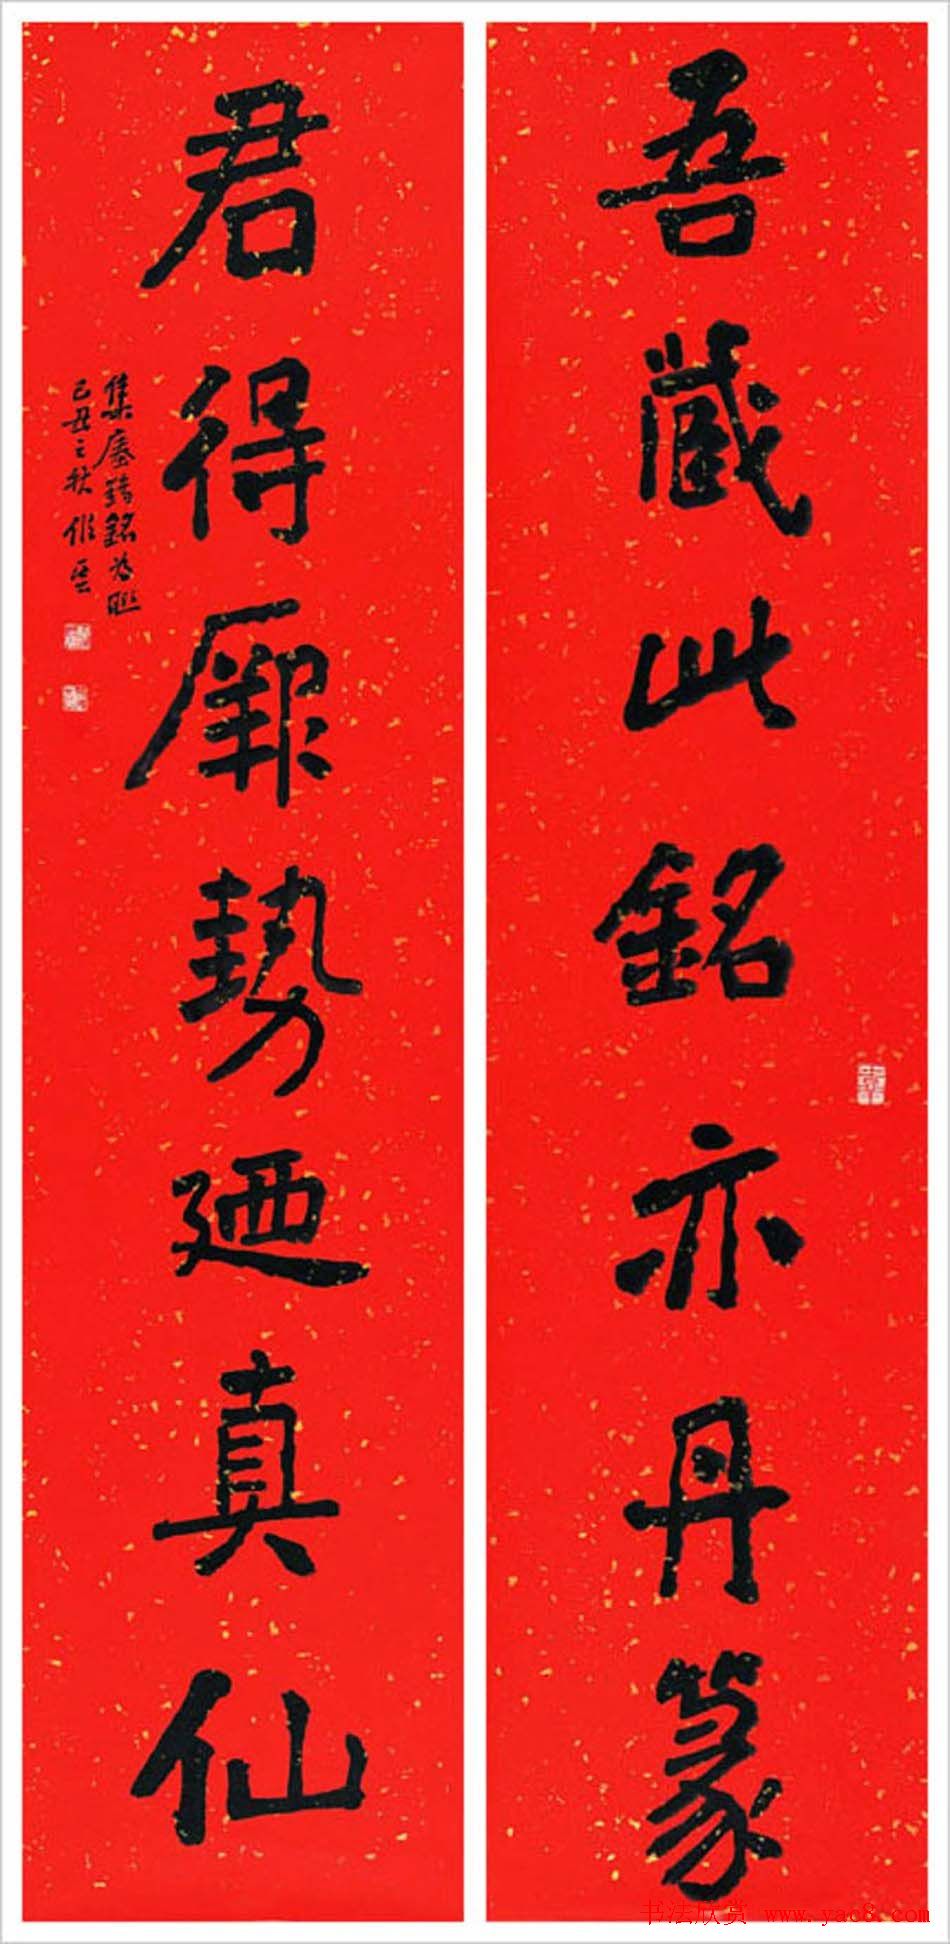 吾藏此銘亦丹篆
君得厥勢廼真仙
集瘞鶴銘为聯
己丑之秋
书法欣赏 www.yac8.com